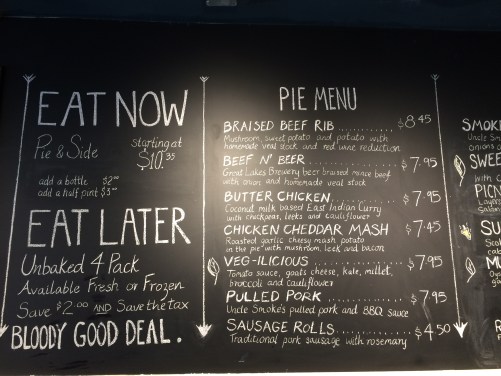 EAT NOW
Pie & Side starting at $10.35
add a bottle $2.00
add a half pint $3.00
EAT LATER
Unbaked 4 Pack
Available Fresh or Frozen
Save $2.00 AND Save the tax
BLOODY GOOD DEAL.
PIE MENU
BRAISED BEEF RIB ............ $8.45
Mushroom, sweet potato and potato with
homemade veal stock and red wine reduction
BEEF N' BEER ............ $7.95
Great Lakes Brewery beer braised mince beef
with onion and homemade veal stock
BUTTER CHICKEN ............ $7.95
Coconut milk based East Indian Curry
with chickpeas, leeks and cauliflower
CHICKEN CHEDDAR MASH $7.45
Roasted garlic cheesy mash potato
in the pie with mushroom, leek and bacon
VEG-ILICIOUS ............ $7.95
Tomato sauce, goats cheese, kale, millet,
broccoli and cauliflower
PULLED PORK ............ $7.95
Uncle Smoke's pulled pork and BBQ sauce
SAUSAGE ROLLS ............ $4.50
Traditional pork sausage with rosemary
SMOKE
Uncle Smo
onions a
SWEE
with C
PIC
Layers
SU
MU